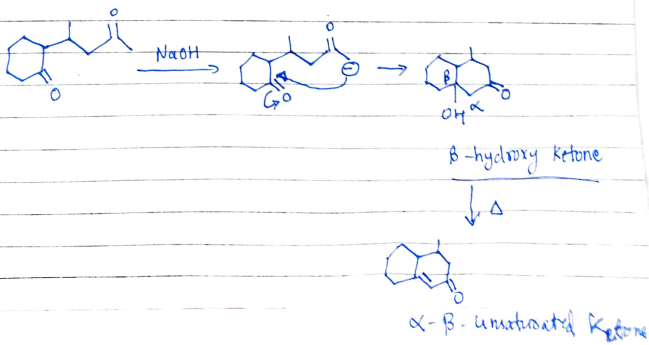 O
O
NaOH
O
O
⊖
→
β
O
OH α
β-hydroxy Ketone
Δ
O
α-β-unsaturated Ketone